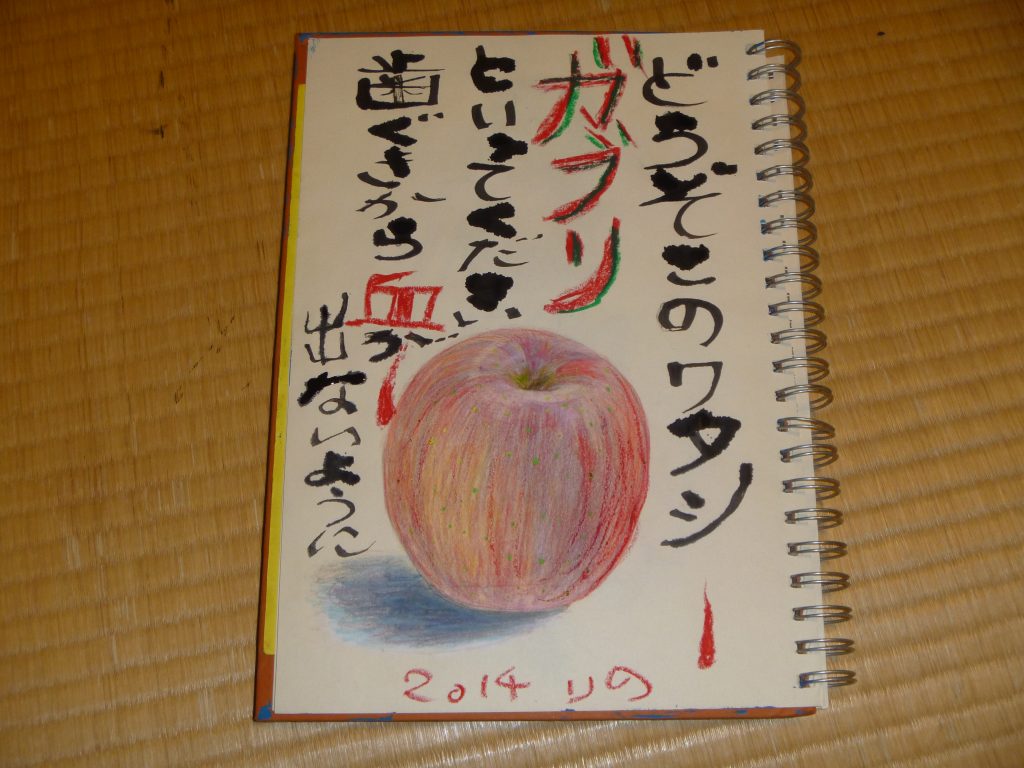 どうぞこのワタシ
ガブリ
といってください
歯ぐきから血が
出ないように
2014